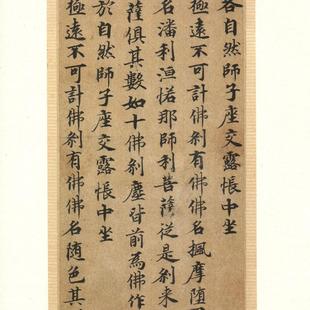 各自然師子座交露帳中坐
極遠不可計佛剎有佛佛名楓摩墮
名潘利洹惹那師利菩薩從是剎来
薩俱其數如十佛剎塵皆前為佛作
於自然師子座交露帳中坐
極遠不可計佛剎有佛佛名随色其